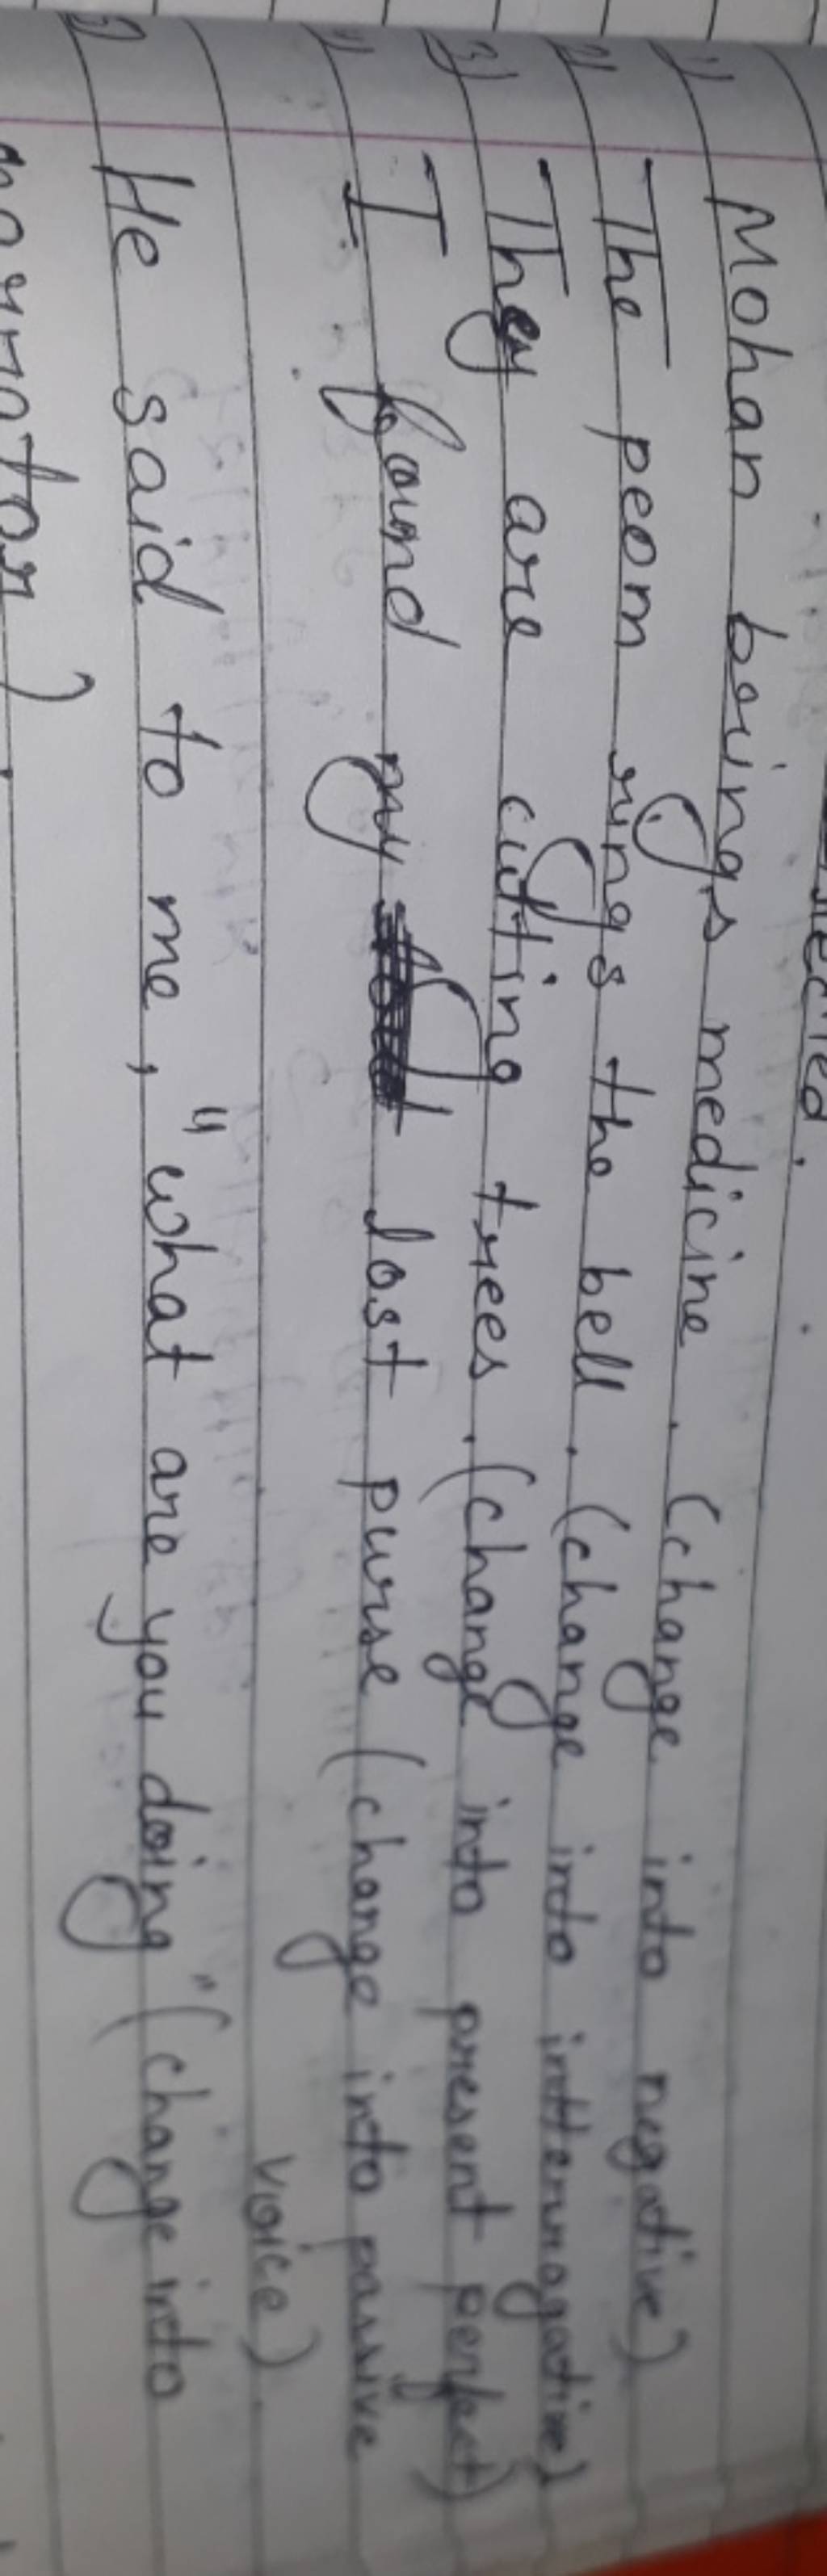 rected.
1) Mohan brings medicine. (change into negative)
2) The peom rings the bell. (change into inttermogative)
3) They are cutting trees. (change into present perfect)
4) I found my lost purse (change into passive
voice)
5) He said to me, "what are you doing" (change into
narrator)